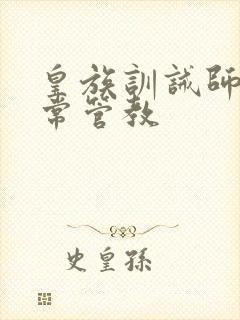 皇族訓誡師
常管教
史皇孫